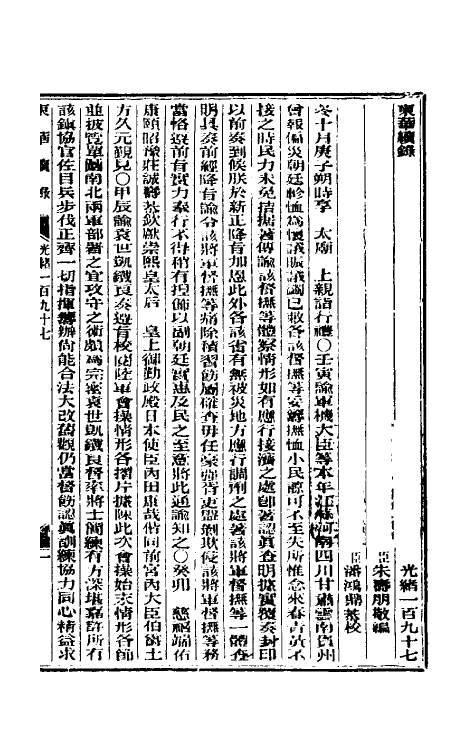 東華續錄
光緒一百九十七
臣朱壽朋敬編
臣潘鴻鼎恭校
冬十月庚子朔時享 太廟 上親詣行禮○壬寅諭軍機大臣等本年江蘇河南四川甘肅雲南貴州
曾報偏災朝廷軫恤為懷議賑議蠲已敕各該督撫等妥籌撫恤小民諒可不至失所惟念來春青黃不
接之時民力未免拮据著傳諭該督撫等體察情形如有應行接濟之處即著認真查明據實覆奏封印
以前奏到候朕於新正降旨加恩此外各該省有無被災地方應行調劑之處著該將軍督撫等一體查
明具奏前經降旨諭令該將軍督撫等痛除積習飭屬確查毋任豪強胥吏侵欺使該將軍督撫等務
當恪遵前旨實力奉行不得稍有捏飾以副朝廷實惠及民之至意將此通諭知之○癸卯 慈禧端佑
康頤昭豫莊誠壽恭欽獻崇熙皇太后 皇上御勤政殿日本使臣內田康哉偕同前宮內大臣伯爵土
方久元覲見○甲辰諭袁世凱鐵良奏遵旨校閱陸軍會操情形各摺片據陳此次會操始末情形各節
並披覽單圖南北兩軍部署之宜攻守之術頗為完密袁世凱鐵良督率將士簡練有方深堪嘉許所有
該鎮協官佐目兵步伐正齊一切指揮籌辦尚能合法大改舊觀仍當督飭認真訓練協力同心精益求
東華續錄 光緒一百九十七 一